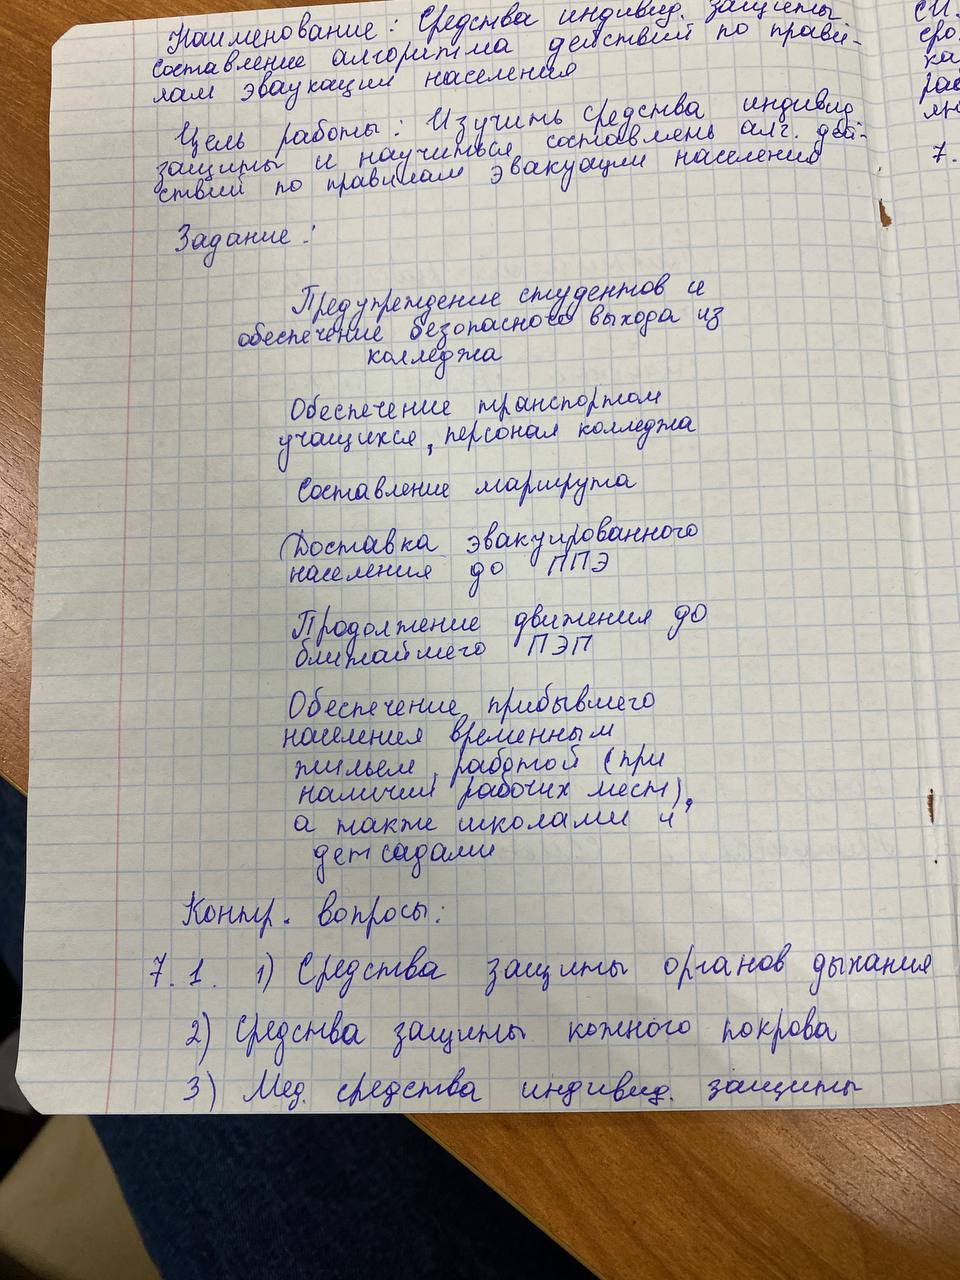 Наименование: Средства индивид. защиты
составление алгоритма действий по прави-
лам эваукации населения
Цель работы: Изучить средства индивид
защиты и научиться составлень алг. дей-
ствий по правилам эвакуации населения
Задание:
Предупреждение студентов и
обеспечение безопасного выхода из
колледжа
Обеспечение транспортом
учащихся, персонал колледжа
Составление маршрута
Доставка эвакуированного
населения до ППЭ
Продолжение движения до
ближайшего ПЭП
Обеспечение прибывшего
населения временным
жильем, работой (при
наличии рабочих мест),
а также школами и
дет садами
Контр. вопросы:
7.1. 1) Средства защиты органов дыхания
2) Средства защиты кожного покрова
3) Мед. средства индивид. защиты
7.